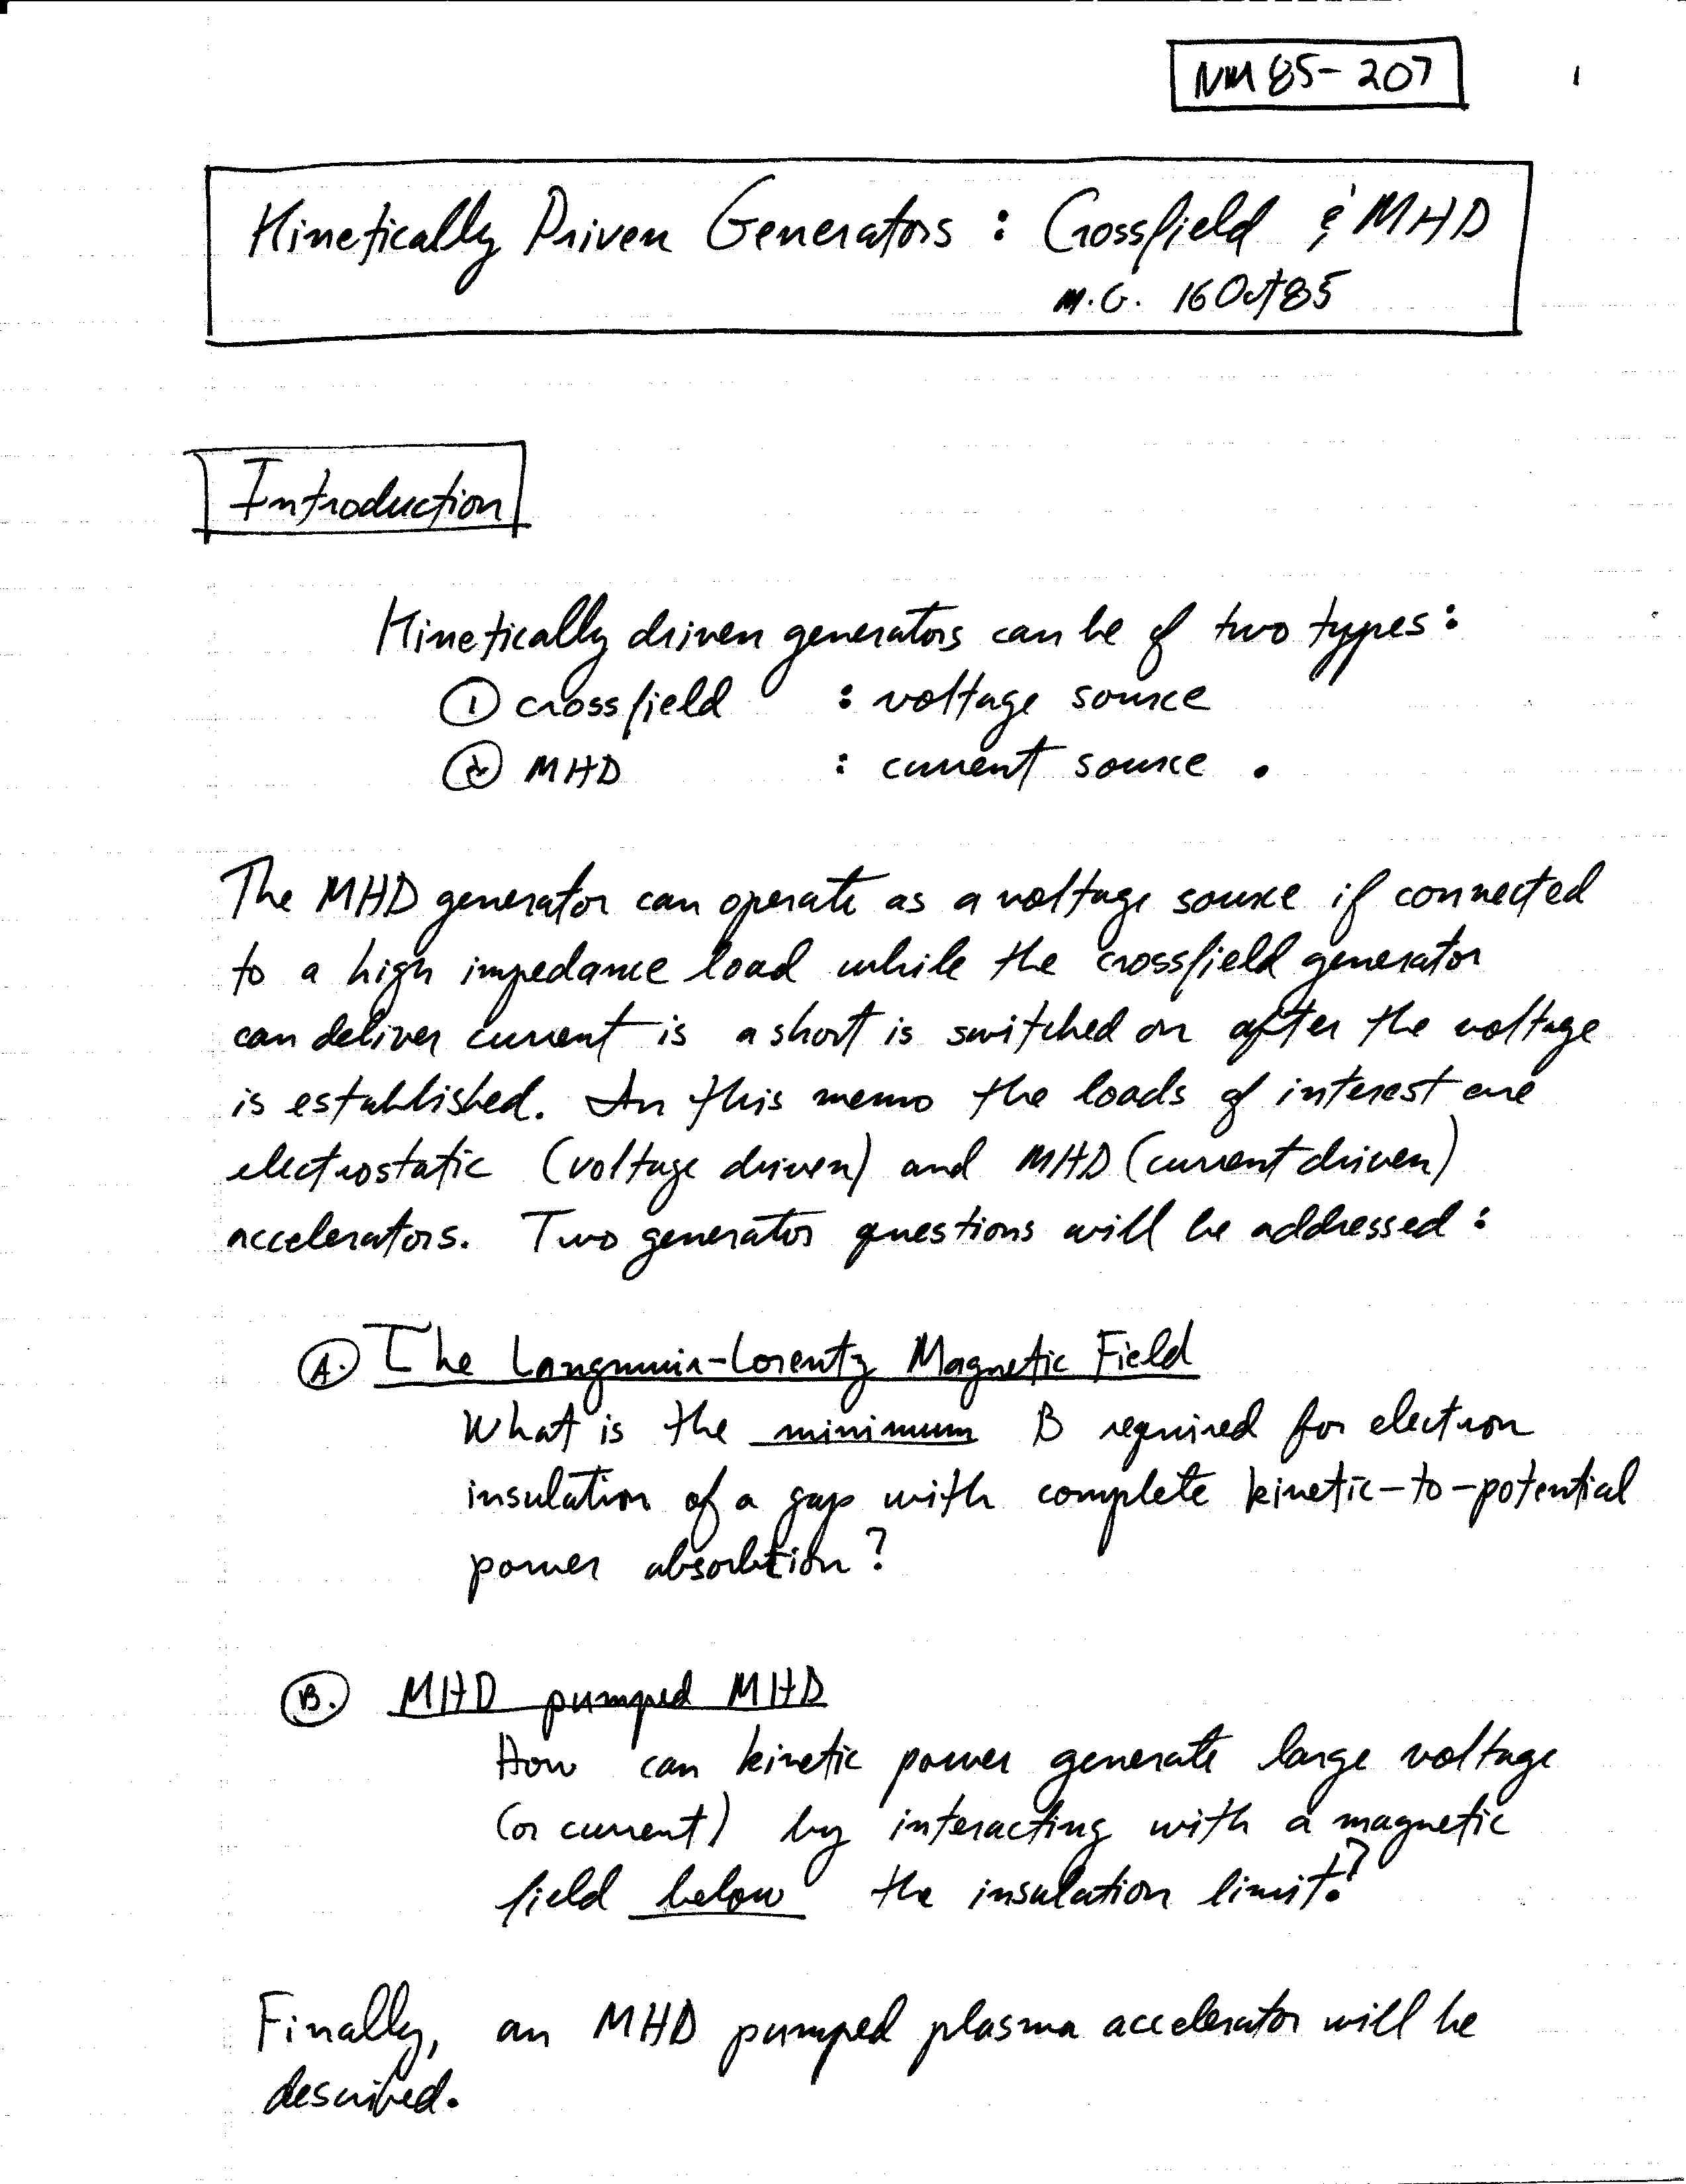 NM 85-207
1
Kinetically Driven Generators : Crossfield & MHD
M.G. 16 Oct 85
Introduction
Kinetically driven generators can be of two types:
① crossfield : voltage source
② MHD : current source .
The MHD generator can operate as a voltage source if connected
to a high impedance load while the crossfield generator
can deliver current is a short is switched on after the voltage
is established. In this memo the loads of interest are
electrostatic (voltage driven) and MHD (current driven)
accelerators. Two generator questions will be addressed:
Ⓐ. The Langmuir-Lorentz Magnetic Field
What is the minimum B required for electron
insulation of a gap with complete kinetic-to-potential
power absorbtion?
Ⓑ. MHD pumped MHD
How can kinetic power generate large voltage
(or current) by interacting with a magnetic
field below the insulation limit?
Finally, an MHD pumped plasma accelerator will be
described.